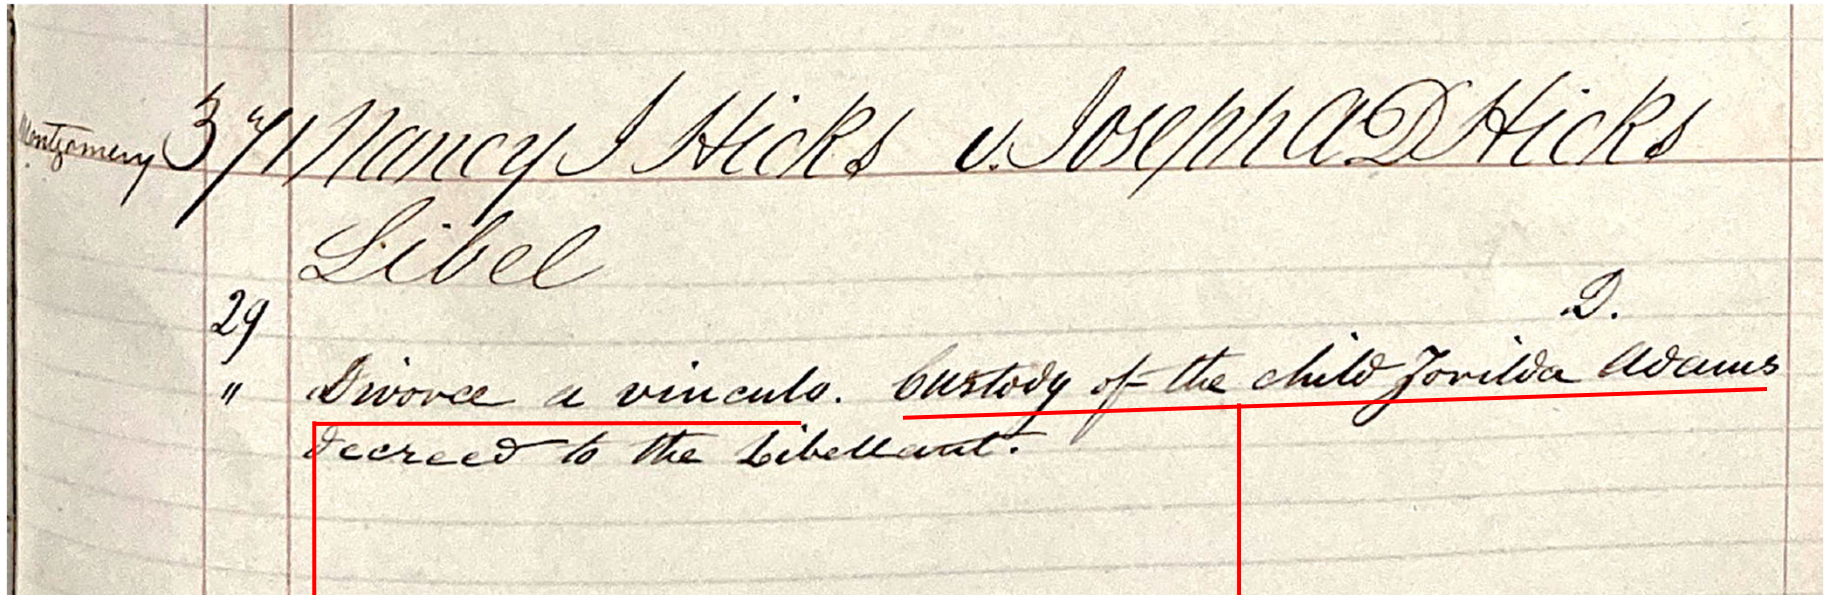 Montgomery 371 Nancy J Hicks v. Joseph A D Hicks
Libel
29 D.
" Divorce a vinculo. Custody of the child Zorilda Adams
decreed to the Libellant.